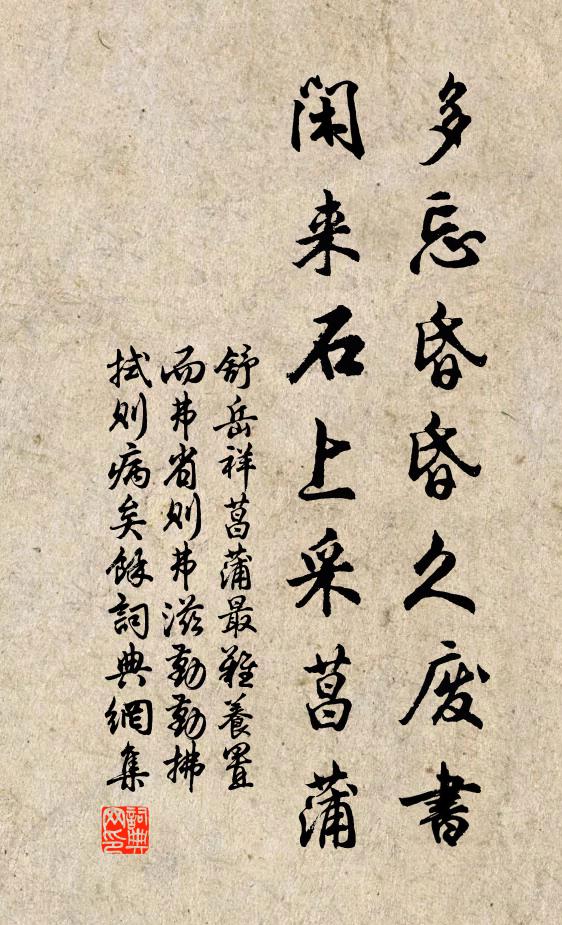 多忘昏昏久废書
闲来石上采菖蒲
舒岳祥菖蒲最難養置
而弗省则弗滋勤勤拂
拭则病矣餘詞典網集
詞典
网印